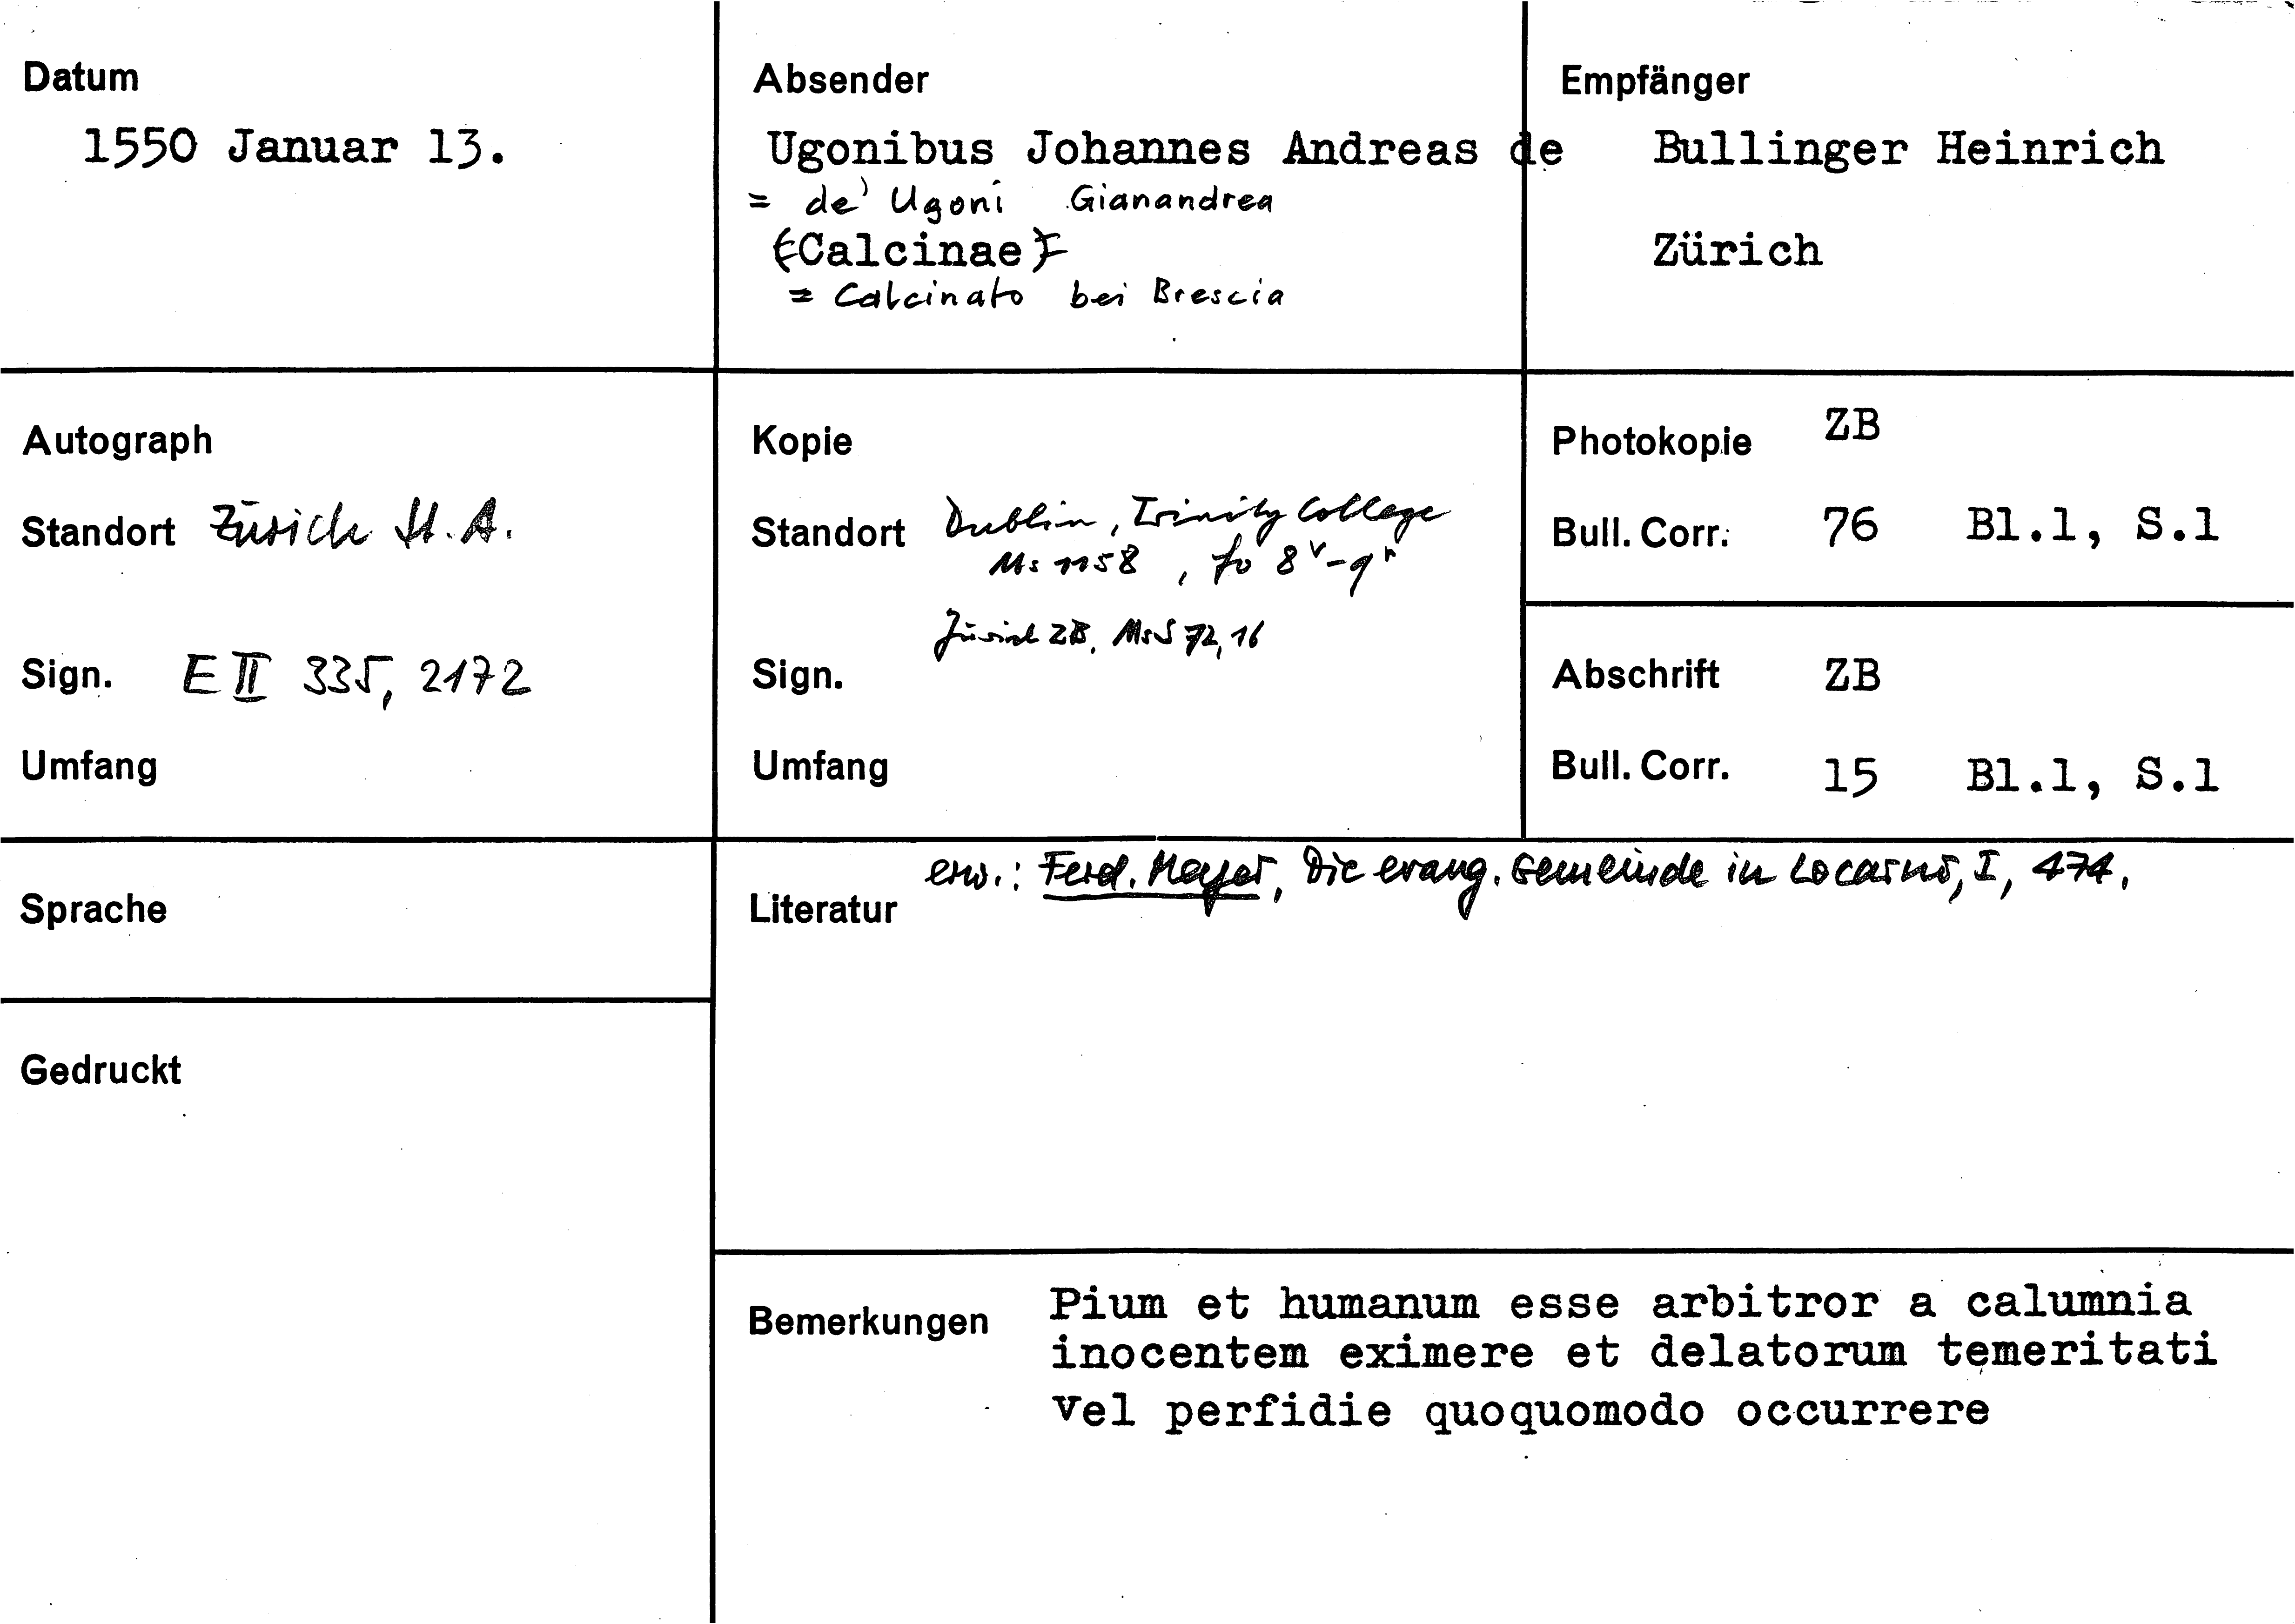 Datum
1550 Januar 13.
Absender
Ugonibus Johannes Andreas de
= de' Ugoni Gianandrea
(Calcinae)
= Calcinato bei Brescia
Empfänger
Bullinger Heinrich
Zürich
Autograph
Standort Zürich St.A.
Sign. E II 335, 2172
Umfang
Kopie
Standort Dublin, Trinity College
Ms 1158, fo 8v-9r
Zürich ZB, MsS 72,16
Sign.
Umfang
Photokopie ZB
Bull. Corr. 76 Bl.1, S.1
Abschrift ZB
Bull. Corr. 15 Bl.1, S.1
Sprache
Gedruckt
erw.: Ferd. Meyer, Die evang. Gemeinde in Locarno, I, 474.
Literatur
Bemerkungen Pium et humanum esse arbitror a calumnia
inocentem eximere et delatorum temeritati
Vel perfidie quoquomodo occurrere